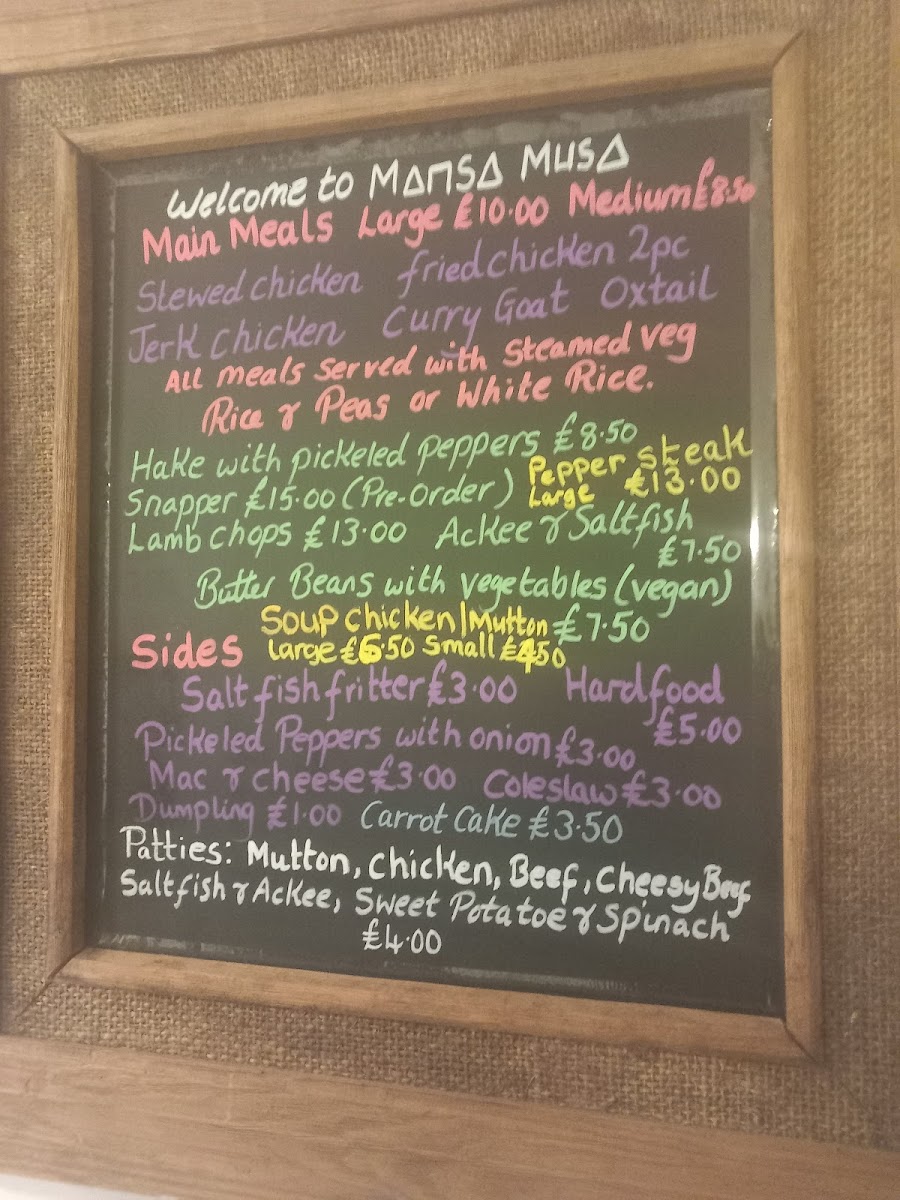 Welcome to MANSA MUSA
Main Meals Large £10.00 Medium £8.50
Stewed chicken fried chicken 2pc
Jerk chicken Curry Goat Oxtail
All meals served with steamed veg
Rice & Peas or White Rice.
Hake with pickeled peppers £8.50
Pepper steak
Snapper £15.00 (Pre-Order) Large £13.00
Lamb chops £13.00 Ackee & Saltfish
£7.50
Butter Beans with vegetables (vegan)
£7.50
Soup chicken/Mutton
Sides Large £6.50 Small £4.50
Salt fish fritter £3.00 Hard food
£5.00
Pickeled Peppers with onion £3.00
Mac & cheese £3.00 Coleslaw £3.00
Dumpling £1.00 Carrot Cake £3.50
Patties: Mutton, Chicken, Beef, Cheesy Beef
Saltfish & Ackee, Sweet Potatoe & Spinach
£4.00